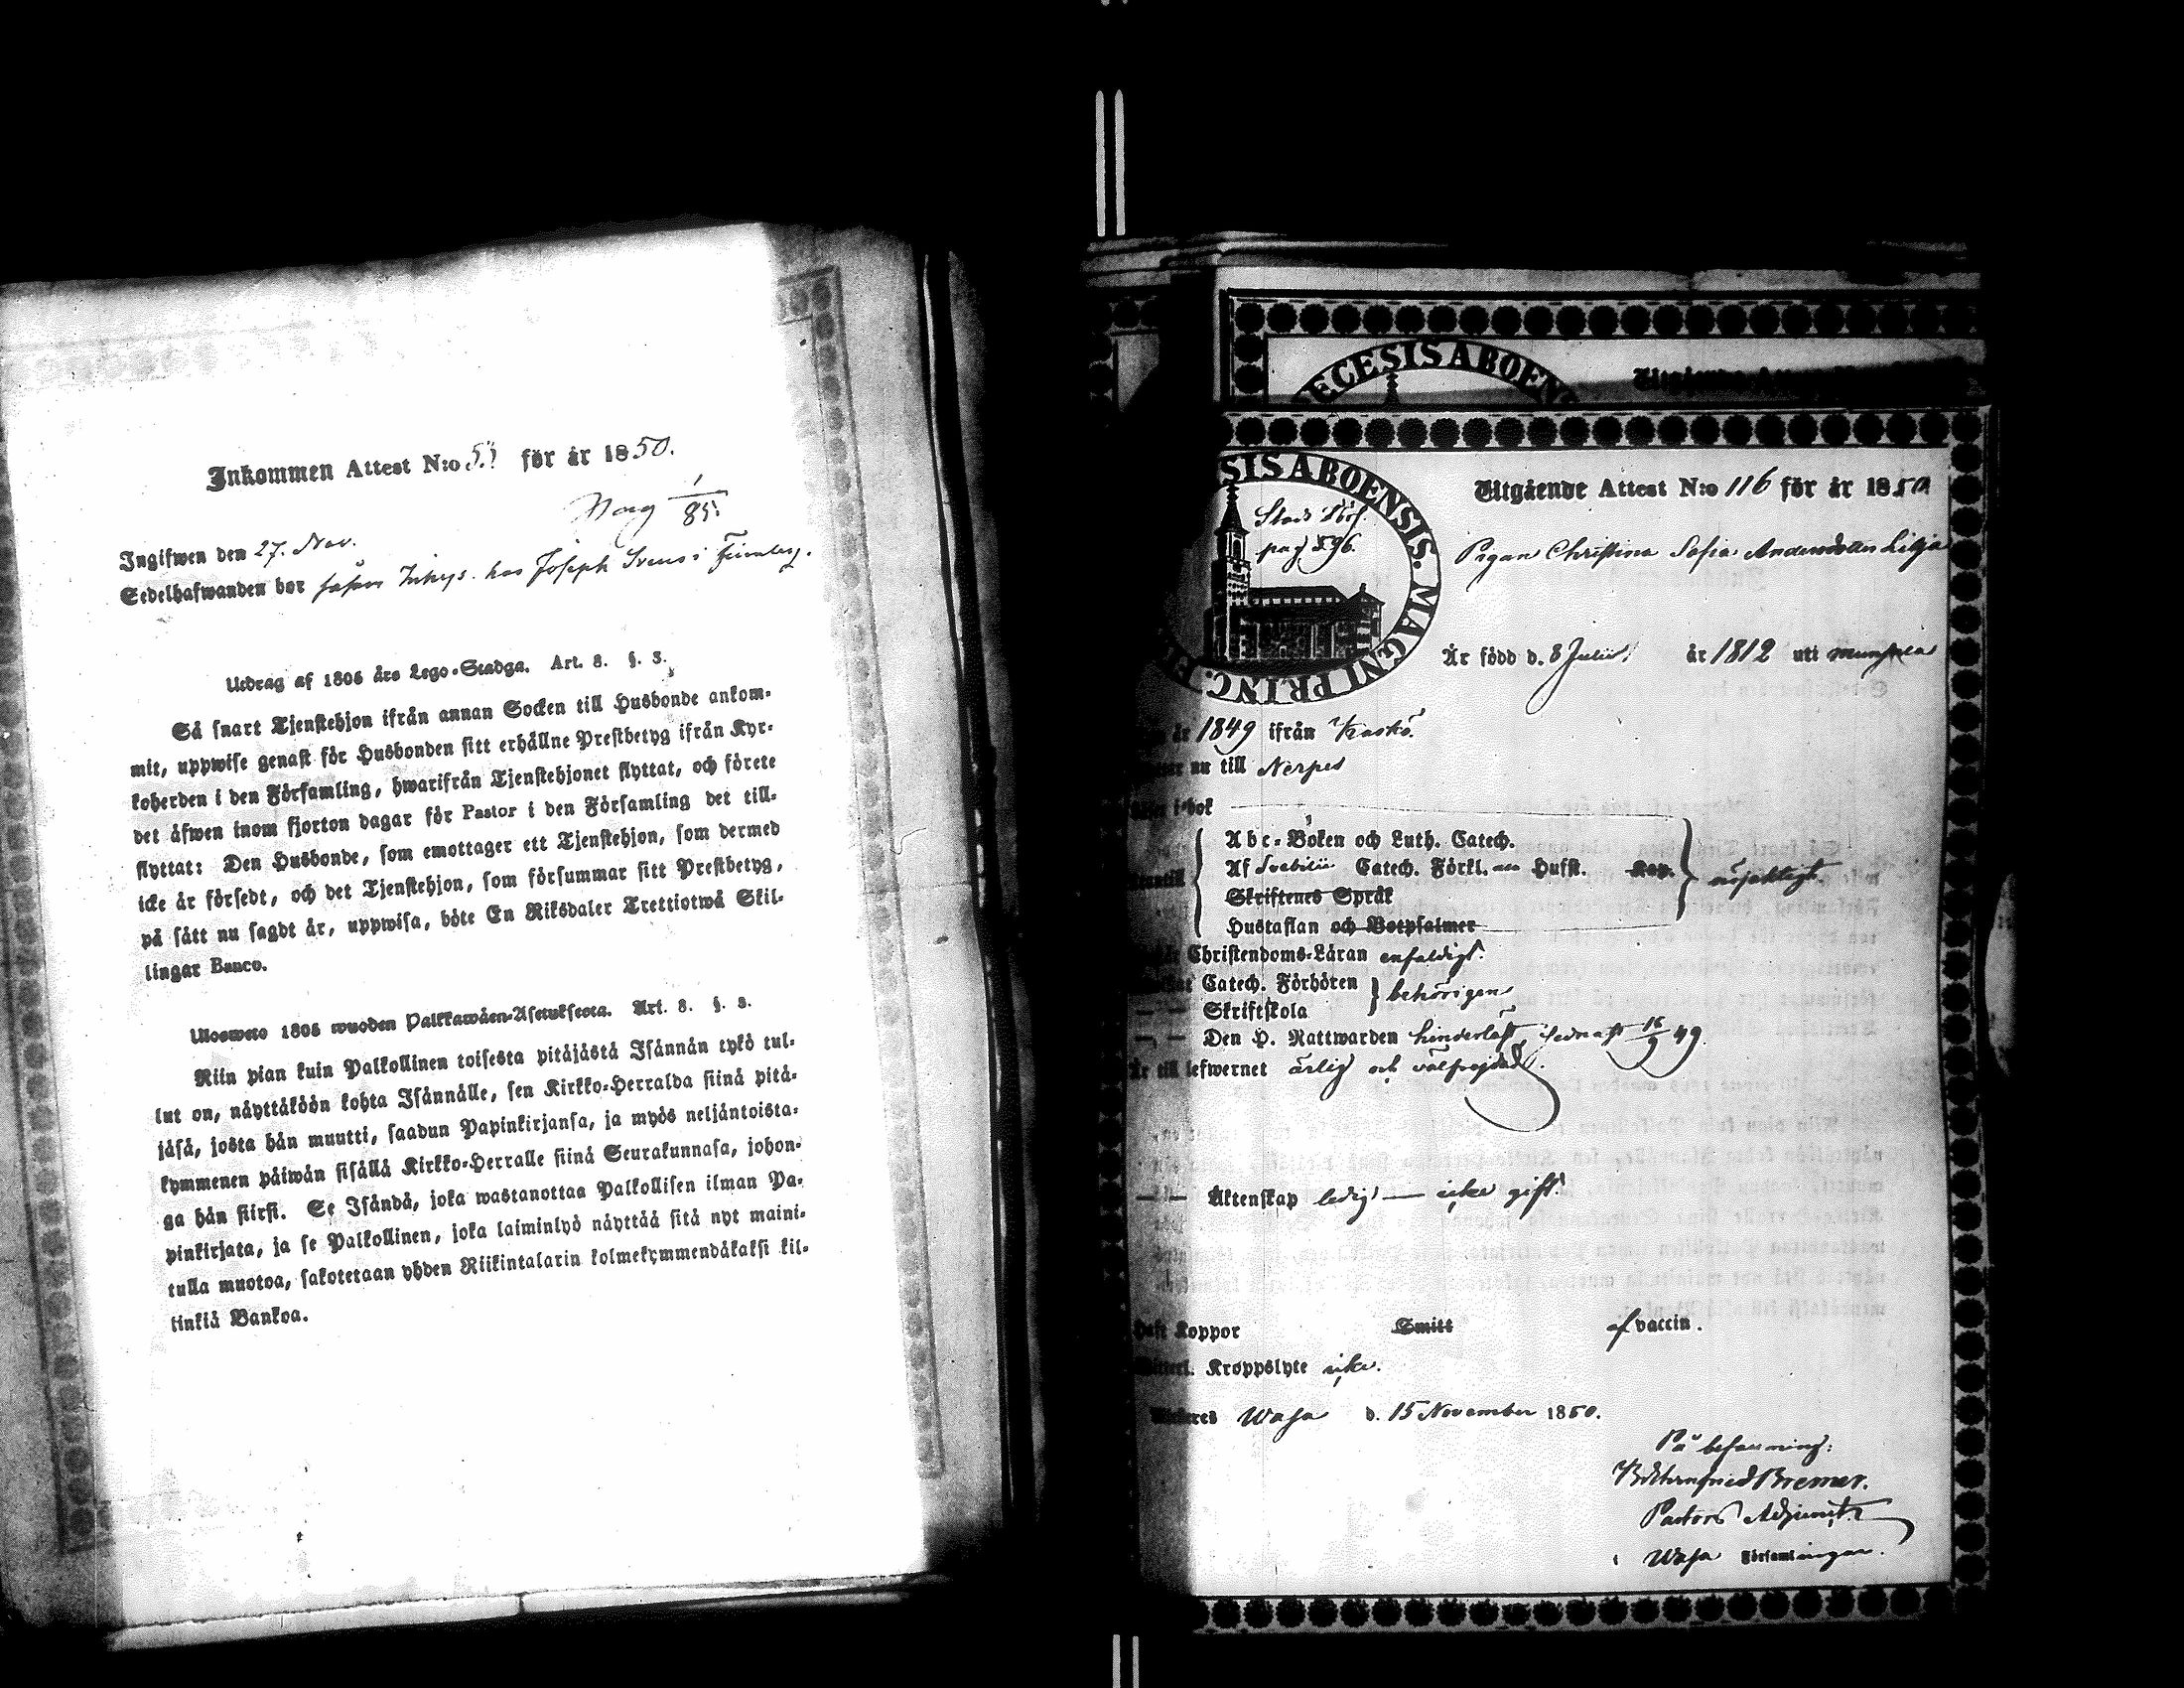 Inkommen Attest N:o för år 1850.
1
85.
Ingifwen den 27. Nov.
Sedelhafwanden bor hos Joseph
Utdrag af 1805 års Lego-Stadga. Art. 8. §. 3.
Så snart Tjenstehjon ifrån annan Socken till Husbonde ankom-
mit, uppwise genast för Husbonden sitt erhållne Prestbetyg ifrån Kyr-
koherden i den Församling, hwarifrån Tjenstehjonet flyttat, och förete
det äfwen inom fjorton dagar för Pastor i den Församling det till-
flyttat: Den Husbonde, som emottager ett Tjenstehjon, som dermed
icke är försedt, och det Tjenstehjon, som försummar sitt Prestbetyg,
på sätt nu sagdt är, uppwisa, böte En Riksdaler Trettiotwå Skil-
lingar Banco.
Ulosweto 1805 wuoden Palkkawäen-Asetuksesta. Art. 8. §. 3.
Niin pian kuin Palkollinen toisesta pitäjästä Isännän tykö tul-
lut on, näyttäköön kohta Isännälle, sen Kirkko-Herralda siinä pitä-
jäsä, josta hän muutti, saadun Papinkirjansa, ja myös neljäntoista-
kymmenen päiwän sisällä Kirkko-Herralle siinä Seurakunnasa, johon-
ga hän siirsi. Se Isändä, joka wastanottaa Palkollisen ilman Pa-
pinkirjata, ja se Palkollinen, joka laiminlyö näyttää sitä nyt maini-
tulla muotoa, sakotetaan yhden Riikintalarin kolmekymmendäkaksi kil-
linkiä Bankoa.
ECESIS ABOEN
SIS ABOENSIS. MAGNI PRINC. FI
Utgående Attest N:o 116 för år 1850
pag 596.
Pigan Christina Sofia Andersdotter Lilja
Är född d. 8 Julii år 1812 uti
år 1849 ifrån Kaskö.
nu till Nerpes
i bok
Abc-Boken och Luth. Catech.
Af Svebilii Catech. Förkl. Husst. Kap.
Skriftenes Språk
Hustaflan och Botpsalmer
Christendoms-Läran enfaldigt.
Catech. Förhören behörigen
— — Skriftskola
— — Den H. Nattwarden sednast 16/9 49.
Är till lefwernet ärlig och välfrejdad.
— — Äktenskap ledig — icke gift
Haft Koppor Smitt af vaccin.
Kroppslyte icke.
Wasa d. 15 November 1850.
På befallning:
Bremer.
Pastors Adjunct
i Wasa Församlingar.